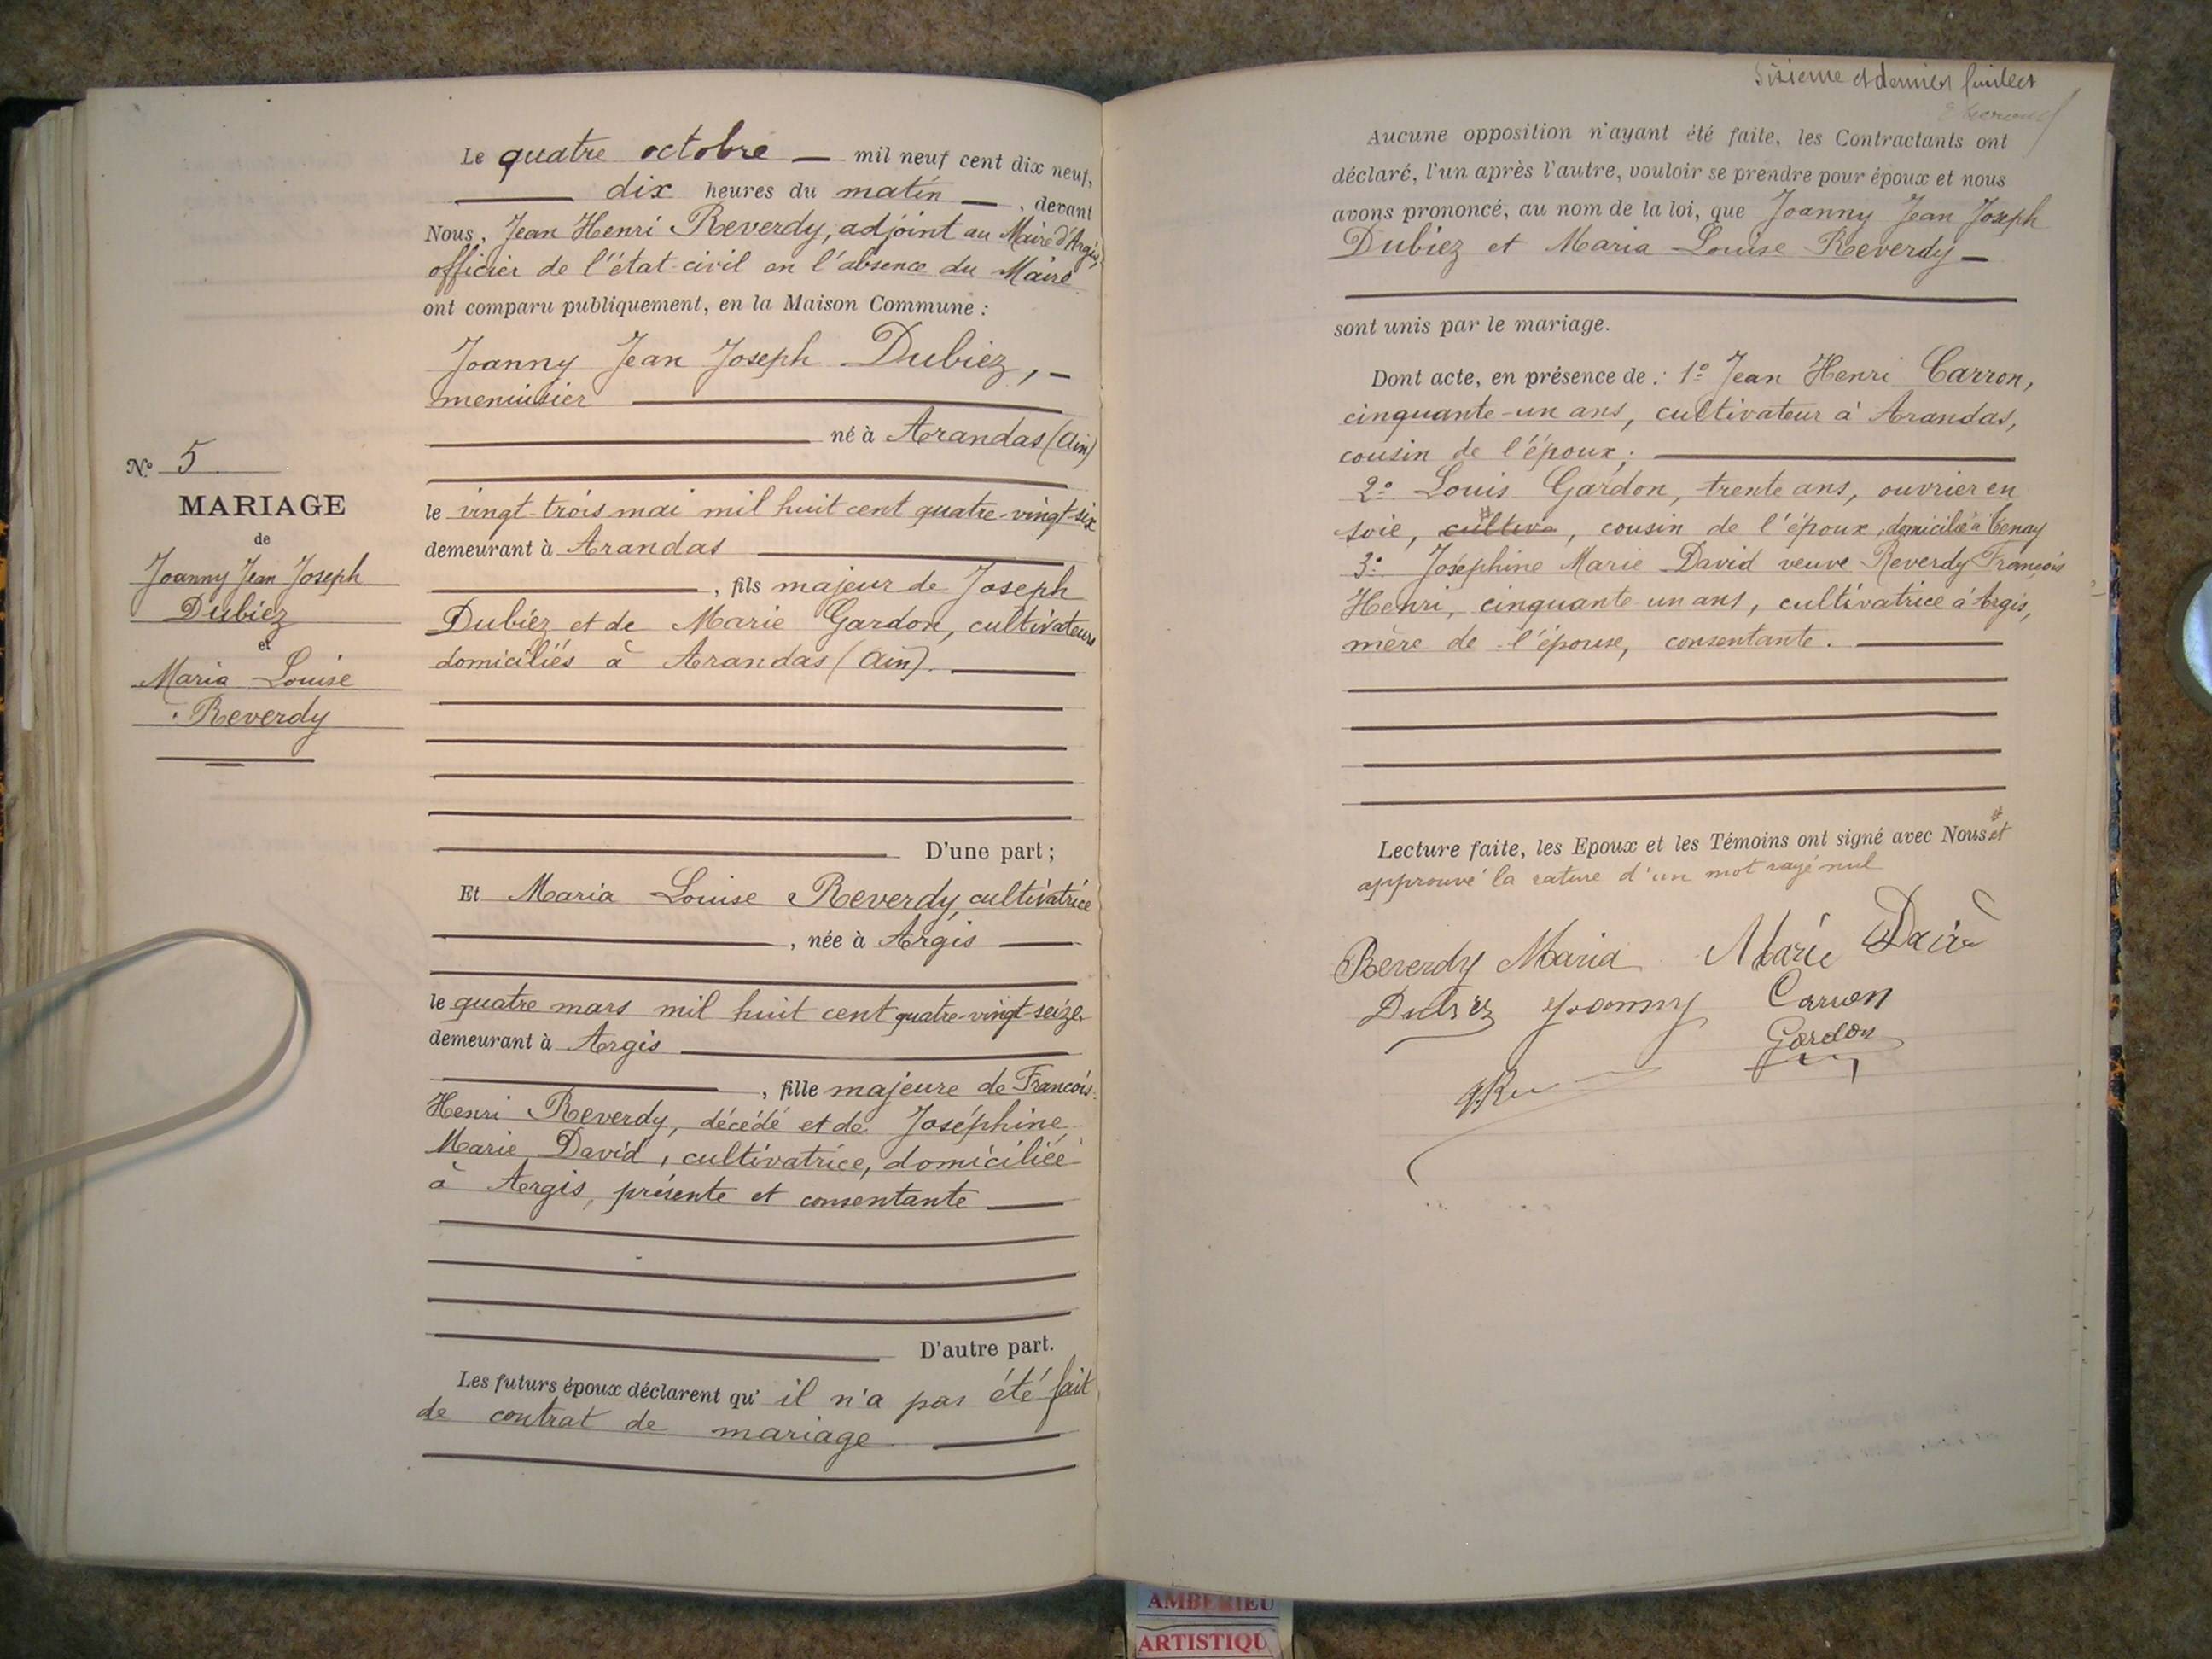 N° 5
MARIAGE
de
Joanny Jean Joseph
Dubiez
et
Maria Louise
Reverdy
Le quatre octobre — mil neuf cent dix neuf,
dix heures du matin —, devant
Nous, Jean Henri Reverdy, adjoint au Maire d'Argis,
officier de l'état-civil en l'absence du Maire
ont comparu publiquement, en la Maison Commune :
Joanny Jean Joseph Dubiez, —
menuisier
né à Arandas (Ain)
le vingt-trois mai mil huit cent quatre-vingt-six
demeurant à Arandas
, fils majeur de Joseph
Dubiez et de Marie Gardon, cultivateurs
domiciliés à Arandas (Ain).
D'une part ;
Et Maria Louise Reverdy, cultivatrice
, née à Argis
le quatre mars mil huit cent quatre-vingt-seize
demeurant à Argis
, fille majeure de François-
Henri Reverdy, décédé et de Joséphine
Marie David, cultivatrice, domiciliée
à Argis, présente et consentante
D'autre part.
Les futurs époux déclarent qu'il n'a pas été fait
de contrat de mariage
Sixieme et dernier feuillet
Aucune opposition n'ayant été faite, les Contractants ont
déclaré, l'un après l'autre, vouloir se prendre pour époux et nous
avons prononcé, au nom de la loi, que Joanny Jean Joseph
Dubiez et Maria Louise Reverdy —
sont unis par le mariage.
Dont acte, en présence de : 1° Jean Henri Carron,
cinquante-un ans, cultivateur à Arandas,
cousin de l'époux ;
2° Louis Gardon, trente ans, ouvrier en
soie, cultiva, cousin de l'époux, domicilié à Tenay
3° Joséphine Marie David veuve Reverdy François
Henri, cinquante un ans, cultivatrice à Argis,
mère de l'épouse, consentante.
Lecture faite, les Epoux et les Témoins ont signé avec Nous et
approuvé la rature d'un mot rayé nul
Reverdy Maria Marie David
Dubiez Joanny Carron
Gardon
AMBERIEU
ARTISTIQU